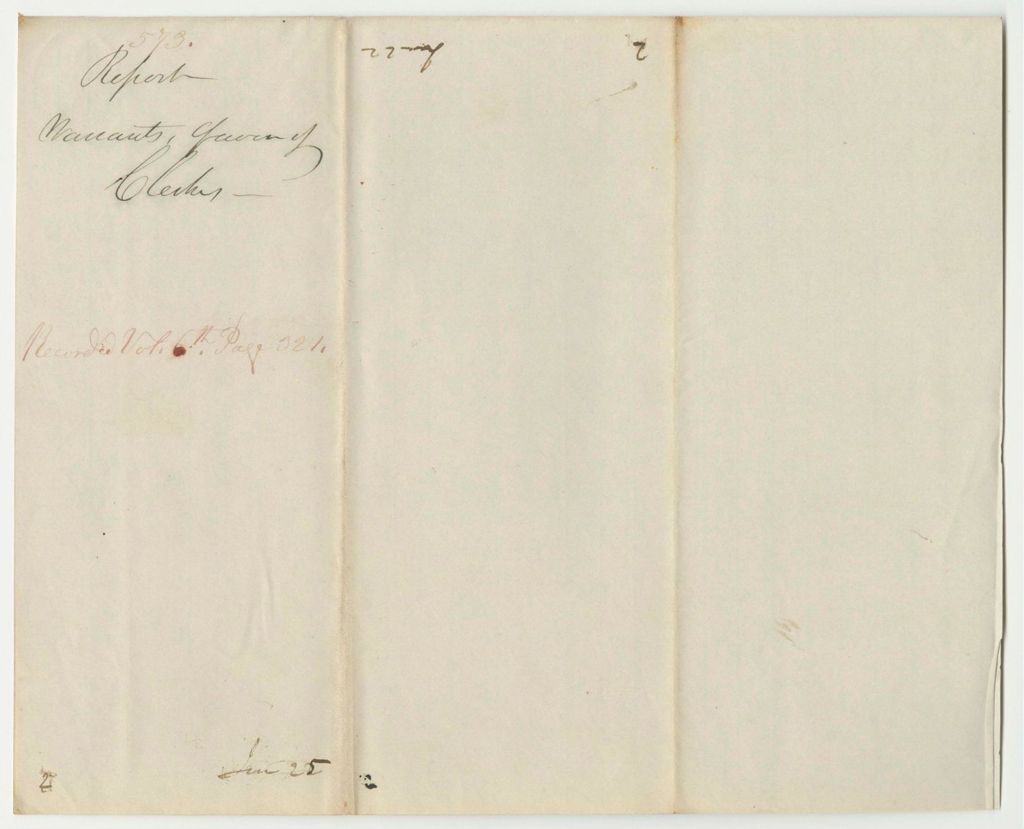 573.
Report
Warrants, favor of
Clerks
Recorded Vol. 6th. Page 321.
Jun 25
2
Jun 22
2